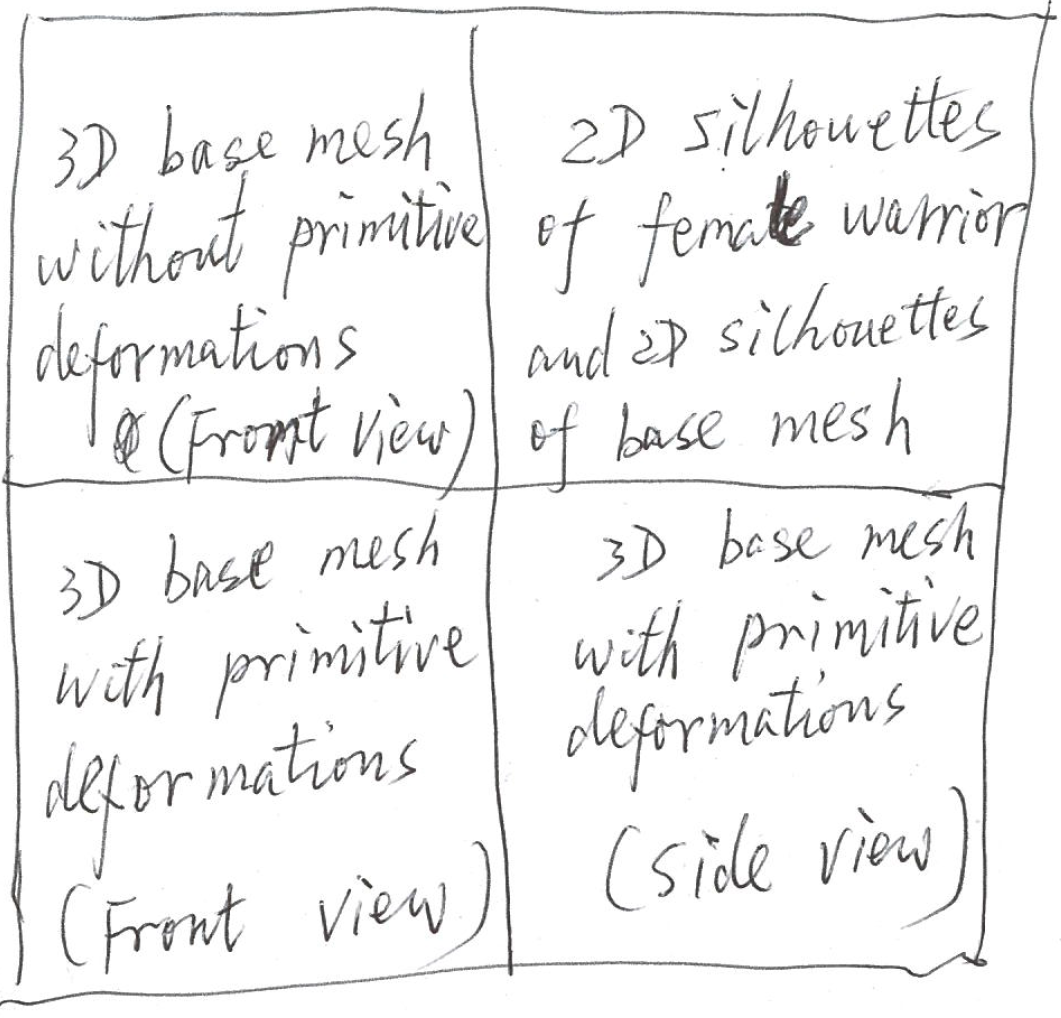 3D base mesh
without primitive
deformations
(Front view)
2D silhouettes
of female warrior
and 2D silhouettes
of base mesh
3D base mesh
with primitive
deformations
(Front view)
3D base mesh
with primitive
deformations
(side view)